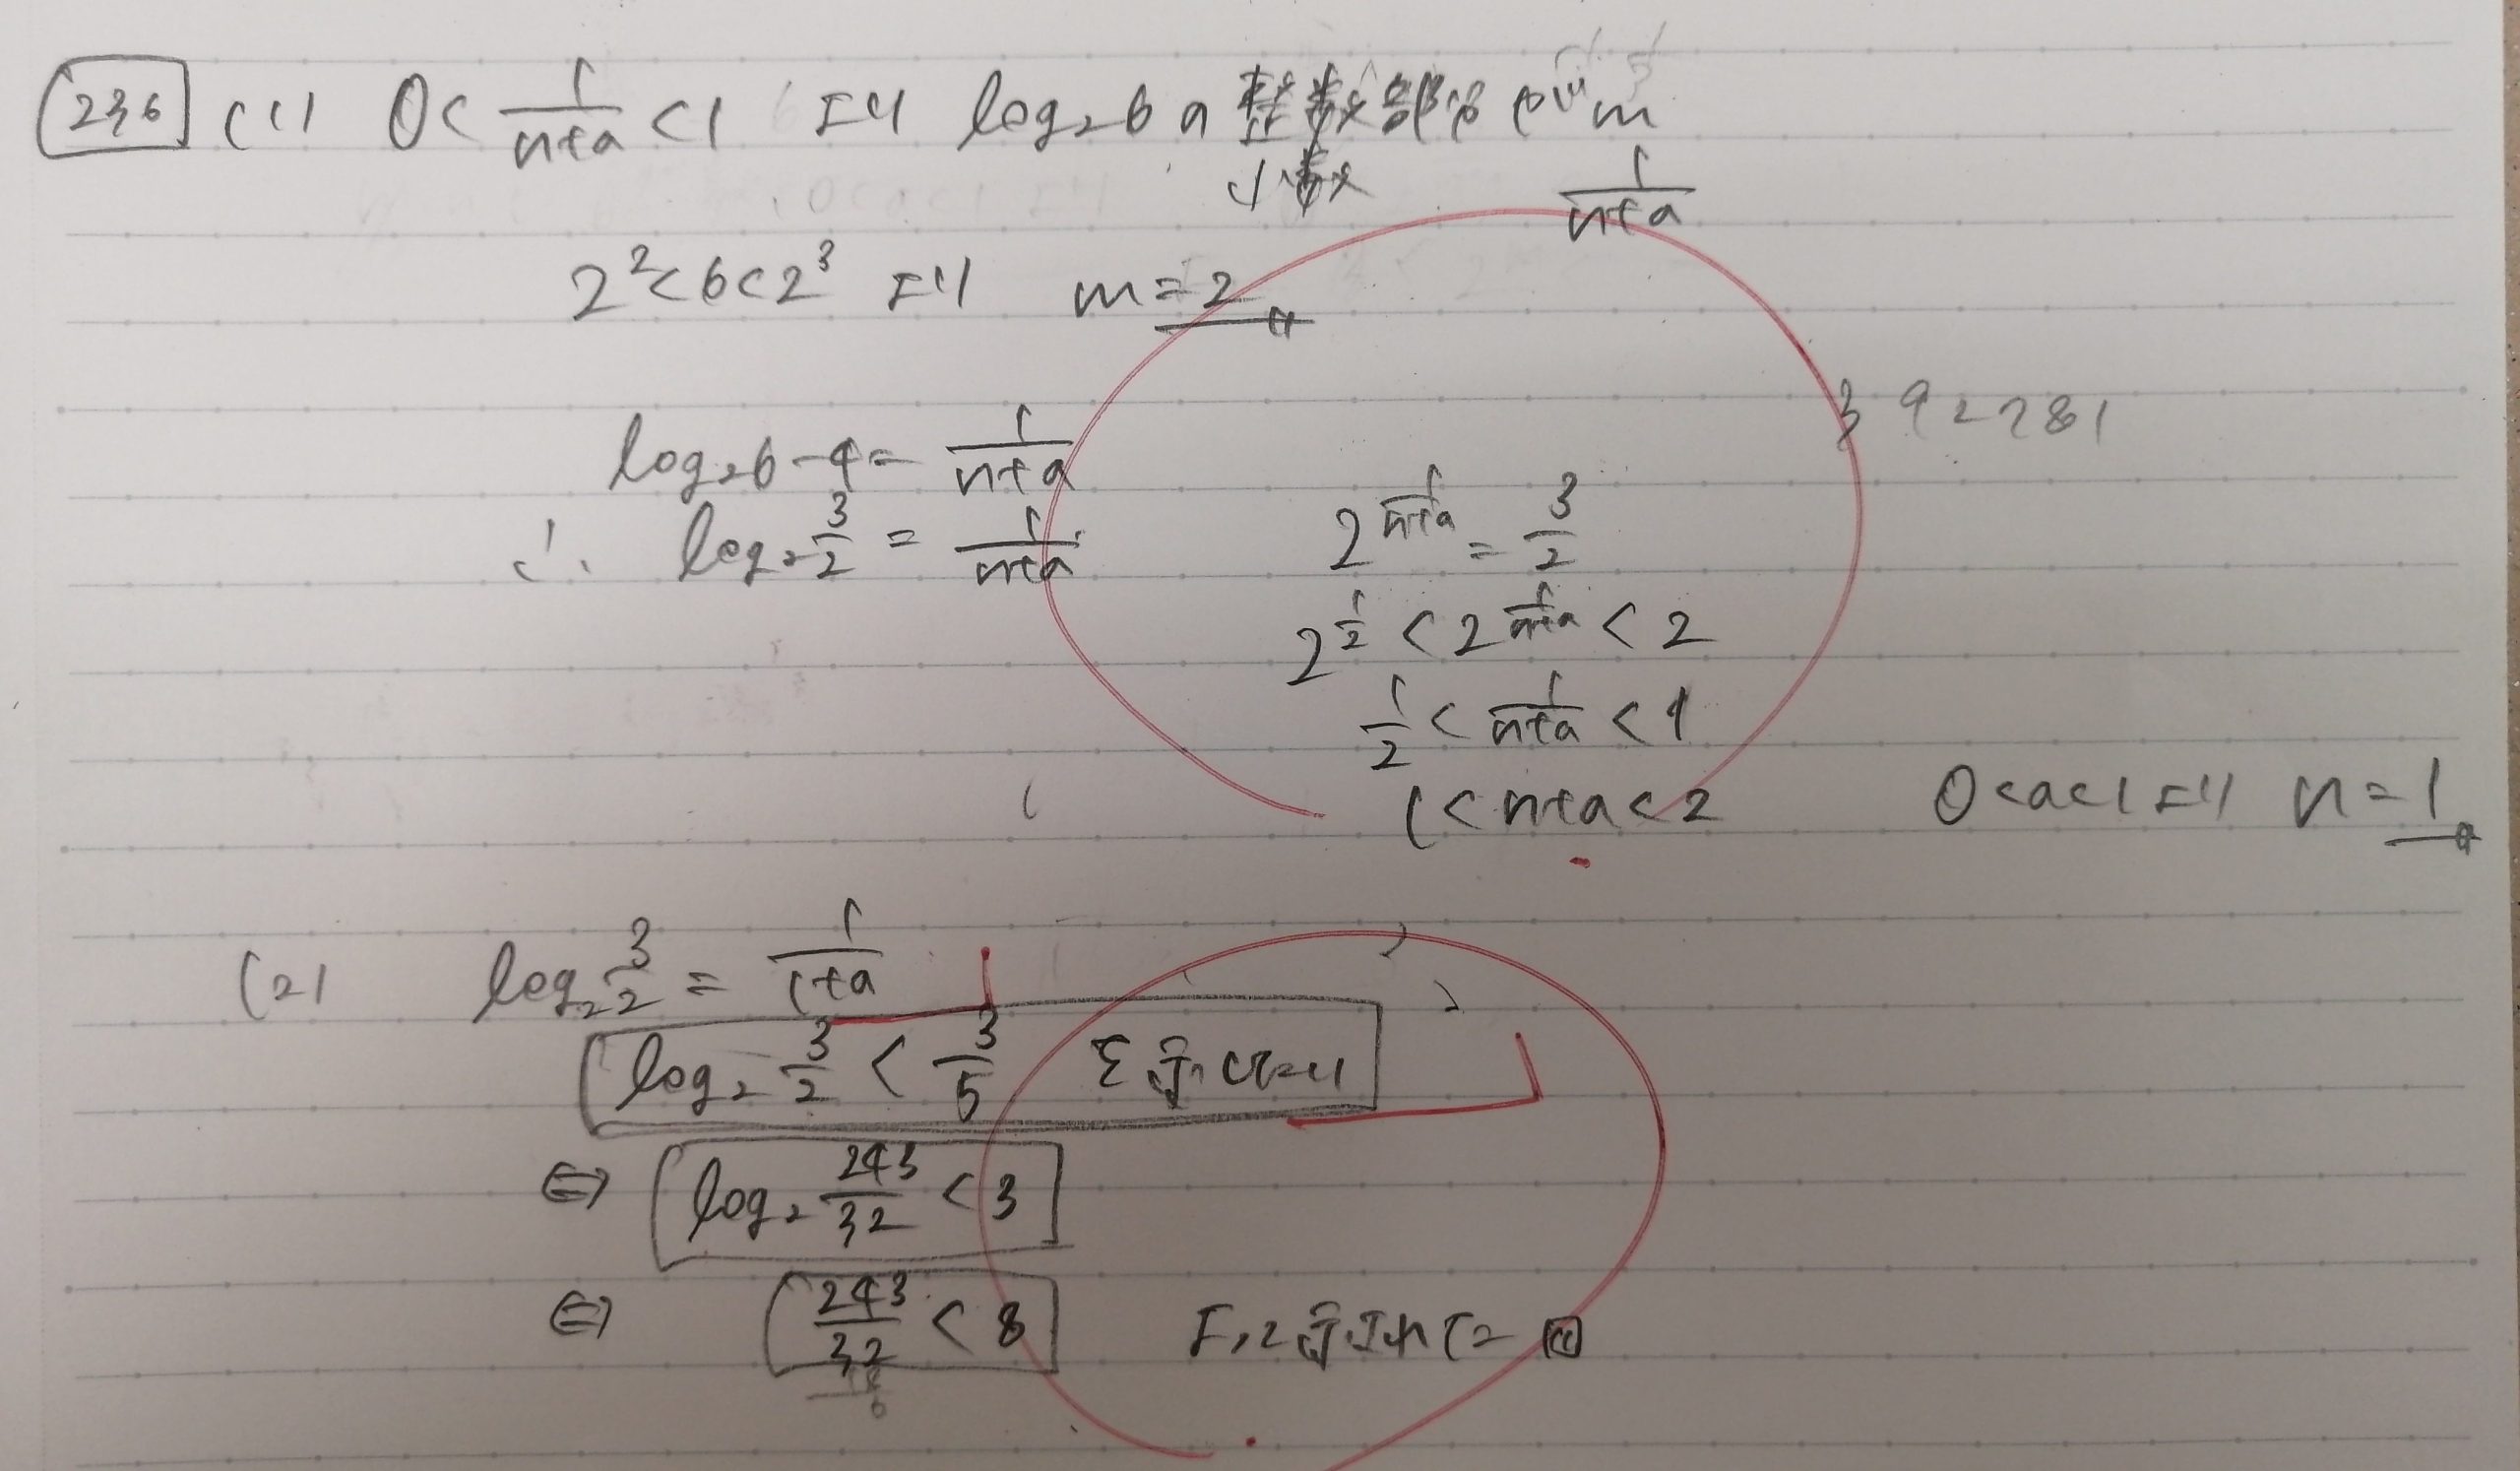 236 (1) 0 < 1/(n+a) < 1 より log₂6 の 整数部分 m
小数 1/(n+a)
2² < 6 < 2³ より m = 2
3 9 27 81
log₂6 - 4 = 1/(n+a)
∴ log₂ 3/2 = 1/(n+a)
2^(1/(n+a)) = 3/2
2^(1/2) < 2^(1/(n+a)) < 2
1/2 < 1/(n+a) < 1
1 < n+a < 2 0 < a < 1 より n = 1
(2) log₂ 3/2 = 1/(1+a)
log₂ 3/2 < 3/5 を示したい
⇔ log₂ 243/32 < 3
⇔ 243/32 < 8 よって示された